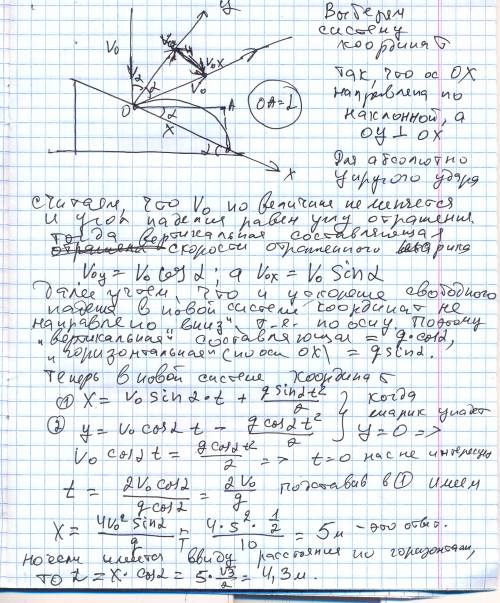 Выберем
систему
координат
так, что ось OX
направлена по
наклонной, а
OY ⊥ OX
Для абсолютно
упругого удара
y
V₀
V₀y
V₀x
V₀
α
α
O
A
OA=L
X
α
α
X
считаем, что V₀ по величине не меняется
и угол падения равен углу отражения.
тогда вертикальная составляющая
скорости отраженного шарика
V₀y = V₀ cos α ; а V₀x = V₀ sin α
далее учтем, что и ускорение свободного
падения в новой системе координат не
направлено вниз, т.е. по оси y. Поэтому
"вертикальная" составляющая = g·cos α,
"горизонтальная" (по оси OX) = g sin α.
Теперь в новой системе координат
① X = V₀ sin α · t + g sin α t²/2
когда
② y = V₀ cos α t − g cos α t²/2
шарик упадет
y = 0 =>
V₀ cos α t = g cos α t²/2 => t=0 нас не интересует
t = 2V₀ cos α / g cos α = 2V₀/g подставив в ① имеем
X = 4V₀² sin α / g = 4·5²·½ / 10 = 5м - это ответ.
но если имеется ввиду расстояния по горизонтали,
то L = X· cos α = 5·√3/2 = 4,3 м.